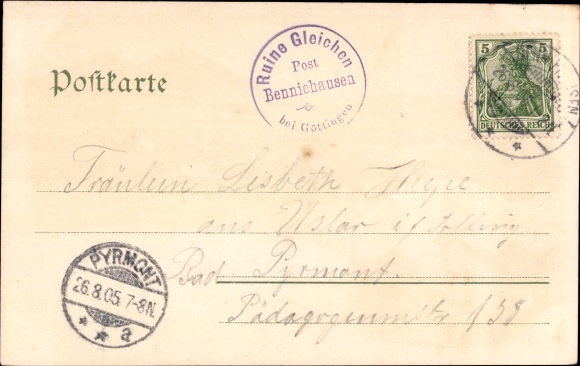 Postkarte
Ruine Gleichen
Post
Benniehausen
bei Göttingen
5 5
DEUTSCHES REICH
Fräulein Lisbeth Heye
aus Uslar i/ Solling
Bad Pyrmont.
Pädagogiumstr
PYRMONT
26.8.05. 7-8N.
* * a